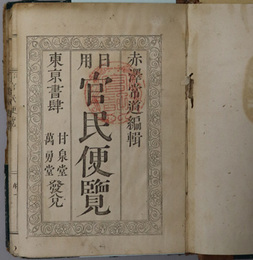 赤澤常道編輯
日用
官民便覽
東京書肆
甘泉堂
萬勇堂
發兌